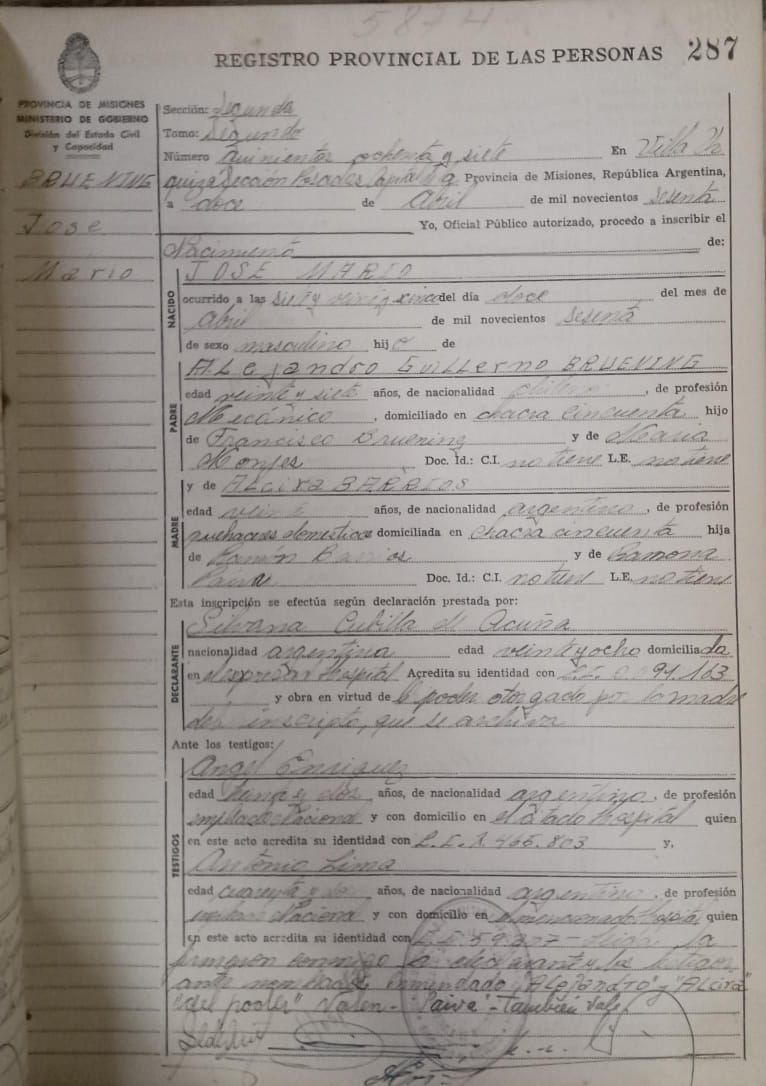 5874
REGISTRO PROVINCIAL DE LAS PERSONAS 287
PROVINCIA DE MISIONES
MINISTERIO DE GOBIERNO
División del Estado Civil
y Capacidad
BRUENING
Jose
Mario
Sección: Segunda
Tomo: Segundo
Número quinientos ochenta y siete En Villa Ur
quiza Sección Posadas Capital de la Provincia de Misiones, República Argentina,
a doce de Abril de mil novecientos sesenta
Yo, Oficial Público autorizado, procedo a inscribir el
Nacimiento de:
NACIDO
JOSE MARIO
ocurrido a las siete y veinticinco del día doce del mes de
Abril de mil novecientos sesenta
de sexo masculino hijo de
PADRE
ALejandro GUILLERMO BRUENING
edad veinte y siete años, de nacionalidad chileno, de profesión
Mecánico, domiciliado en chacra cincuenta hijo
de Francisco Bruening y de Maria
Monjes Doc. Id.: C.I. no tiene L.E. no tiene
MADRE
y de ALCira BARRIOS
edad veinte años, de nacionalidad argentina, de profesión
quehaceres domésticos domiciliada en chacra cincuenta hija
de Ramón Barrios y de Ramona
Doc. Id.: C.I. no tiene L.E. no tiene
Esta inscripción se efectúa según declaración prestada por:
DECLARANTE
Silvana Cubilla de Acuña
nacionalidad argentina edad veinte y ocho domiciliada
en el expresado Hospital Acredita su identidad con 0.091.163
y obra en virtud de el poder otorgado por la madre
del inscripto, que se archiva
Ante los testigos:
TESTIGOS
Angel Enriquez
edad treinta y dos años, de nacionalidad argentino, de profesión
empleado Nacional y con domicilio en el citado Hospital quien
en este acto acredita su identidad con L.E. 1.465.803 y,
Antonio Lima
edad cuarenta y años, de nacionalidad argentino, de profesión
empleado Nacional y con domicilio en el mencionado Hospital, quien
en este acto acredita su identidad con L.E. Leida la
firmaron conmigo la declarante y los testigos
ante nombrados enmendado "ALEJANDRO" y "ALCIRA"
"del poder" Valen - "Paiva" - también vale